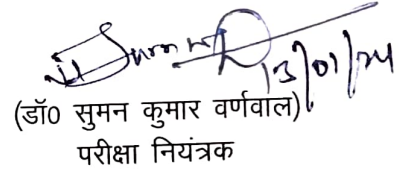 13/01/24
(डॉ0 सुमन कुमार वर्णवाल)
परीक्षा नियंत्रक